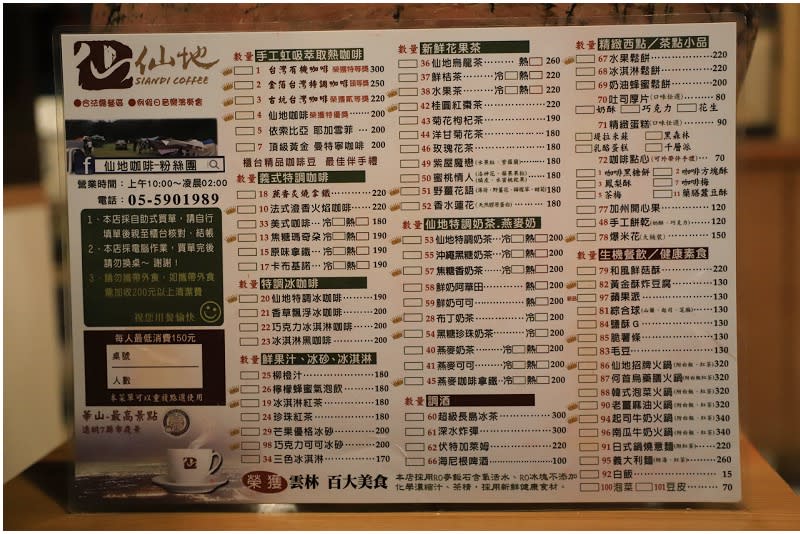 仙地
SIANDI COFFEE
●合法露營區 ●有假日音樂演奏會
f 仙地咖啡-粉絲團
營業時間：上午10:00～凌晨02:00
電話：05-5901989
1、本店採自助式買單，請自行
填單後親至櫃台核對、結帳
2、本店採電腦作業，買單完後
請勿換桌～ 謝謝！
3、請勿攜帶外食，如攜帶外食
需加收200元以上清潔費
祝您用餐愉快
每人最低消費150元
桌號
人數
本菜單可以重複點選使用
華山-最高景點
遠眺7縣市夜景
數量 手工虹吸萃取熱咖啡
1 台灣有機咖啡 榮獲特等獎 300
2 金箔台灣特調咖啡 頭等獎 250
3 古坑台灣咖啡 榮獲貳等獎 220
4 仙地咖啡 榮獲特優獎 200
5 依索比亞 耶加雪菲 200
7 頂級黃金 曼特寧咖啡 200
櫃台精品咖啡豆 最佳伴手禮
數量 義式特調咖啡
18 燕麥炙燒拿鐵 220
10 法式澄香火焰咖啡 220
33 美式咖啡 冷 熱 180
13 焦糖瑪奇朵 冷 熱 190
15 原味拿鐵 冷 熱 190
17 卡布基諾 冷 熱 190
數量 特調冰咖啡
20 仙地特調冰咖啡 190
21 香草飄浮冰咖啡 200
22 巧克力冰淇淋咖啡 200
23 冰淇淋黑咖啡 200
數量 鮮果汁、冰砂、冰淇淋
25 柳橙汁 180
26 檸檬蜂蜜氣泡飲 180
19 冰淇淋紅茶 180
24 珍珠紅茶 180
29 芒果優格冰砂 200
98 巧克力可可冰砂 200
34 三色冰淇淋 170
榮獲 雲林 百大美食
數量 新鮮花果茶
36 仙地烏龍茶 熱 260
37 鮮桔茶 冷 熱 220
38 水果茶 冷 熱 220
42 桂圓紅棗茶 200
43 菊花枸杞茶 190
44 洋甘菊花茶 180
46 玫瑰花茶 180
49 紫屋魔戀 180
50 蜜桃情人 180
51 野薑花語 180
52 香水蓮花 200
數量 仙地特調奶茶.燕麥奶
53 仙地特調奶茶 冷 熱 200
55 沖繩黑糖奶茶 冷 熱 200
57 焦糖香奶茶 冷 熱 200
58 鮮奶阿華田 冷 熱 200
59 鮮奶可可 冷 熱 200
28 布丁奶茶 冷 熱 200
54 黑糖珍珠奶茶 冷 熱 200
40 燕麥奶茶 冷 熱 200
41 燕麥可可 冷 熱 200
45 燕麥咖啡拿鐵 冷 熱 200
數量 調酒
60 超級長島冰茶 200
61 深水炸彈 200
62 伏特加萊姆 220
66 海尼根啤酒 100
本店採用RO麥飯石含氧活水、RO冰塊不添加
化學濃縮汁、茶精，採用新鮮健康食材。
數量 精緻西點/茶點小品
67 水果鬆餅 220
68 冰淇淋鬆餅 220
69 奶油蜂蜜鬆餅 200
70 吐司厚片(口味任選) 80
奶酥 巧克力 花生
71 精緻蛋糕(口味任選) 90
堤拉米蘇 黑森林
乳酪蛋糕 千層派
72 咖啡點心(可外帶伴手禮) 70
1 咖啡黑糖餅 2 咖啡方塊酥
3 鳳梨酥 7 咖啡梅
5 茶梅 11 藥膳蠶豆酥
77 加州開心果 100
48 手工餅乾(奶酥、巧克力) 120
78 爆米花(大桶裝) 150
數量 生機餐飲/健康素食
79 和風鮮菇酥 220
82 黃金酥炸豆腐 130
97 蘋果派 130
81 綜合球 130
84 鹽酥G 130
85 脆薯條 130
83 毛豆 130
86 仙地招牌火鍋(附白飯、紅茶) 320
87 何首烏藥膳火鍋(附白飯、紅茶) 320
88 韓式泡菜火鍋(附白飯、紅茶) 320
90 老薑麻油火鍋(附白飯、紅茶) 320
94 起司牛奶火鍋(附白飯、紅茶) 340
96 南瓜牛奶火鍋(附白飯、紅茶) 340
91 日式鍋燒意麵(附紅茶) 220
95 義大利麵 260
92 白飯 15
100 泡菜 101 豆皮 70